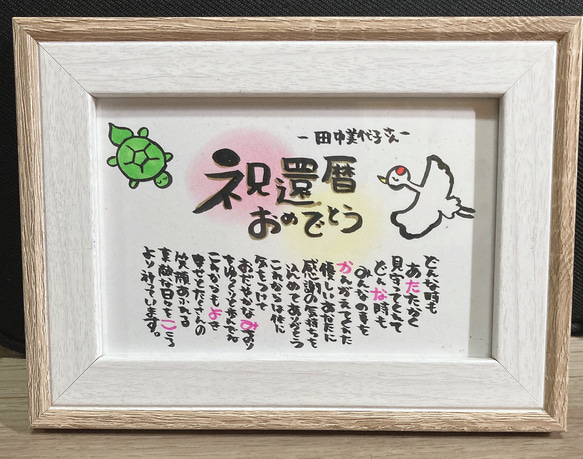 －田中美代子さん－
祝還暦
おめでとう
どんな時も
あたたかく
見守ってくれて
どんな時も
みんなの事を
かんがえてくれた
優しいあなたに
感謝の気持ちを
込めてありがとう
これからは体に
気をつけて
おだやかな
ゆっくりと
これからもよき
幸せとたくさんの
笑顔あふれる
素敵な日々をこころ
より祈っています。